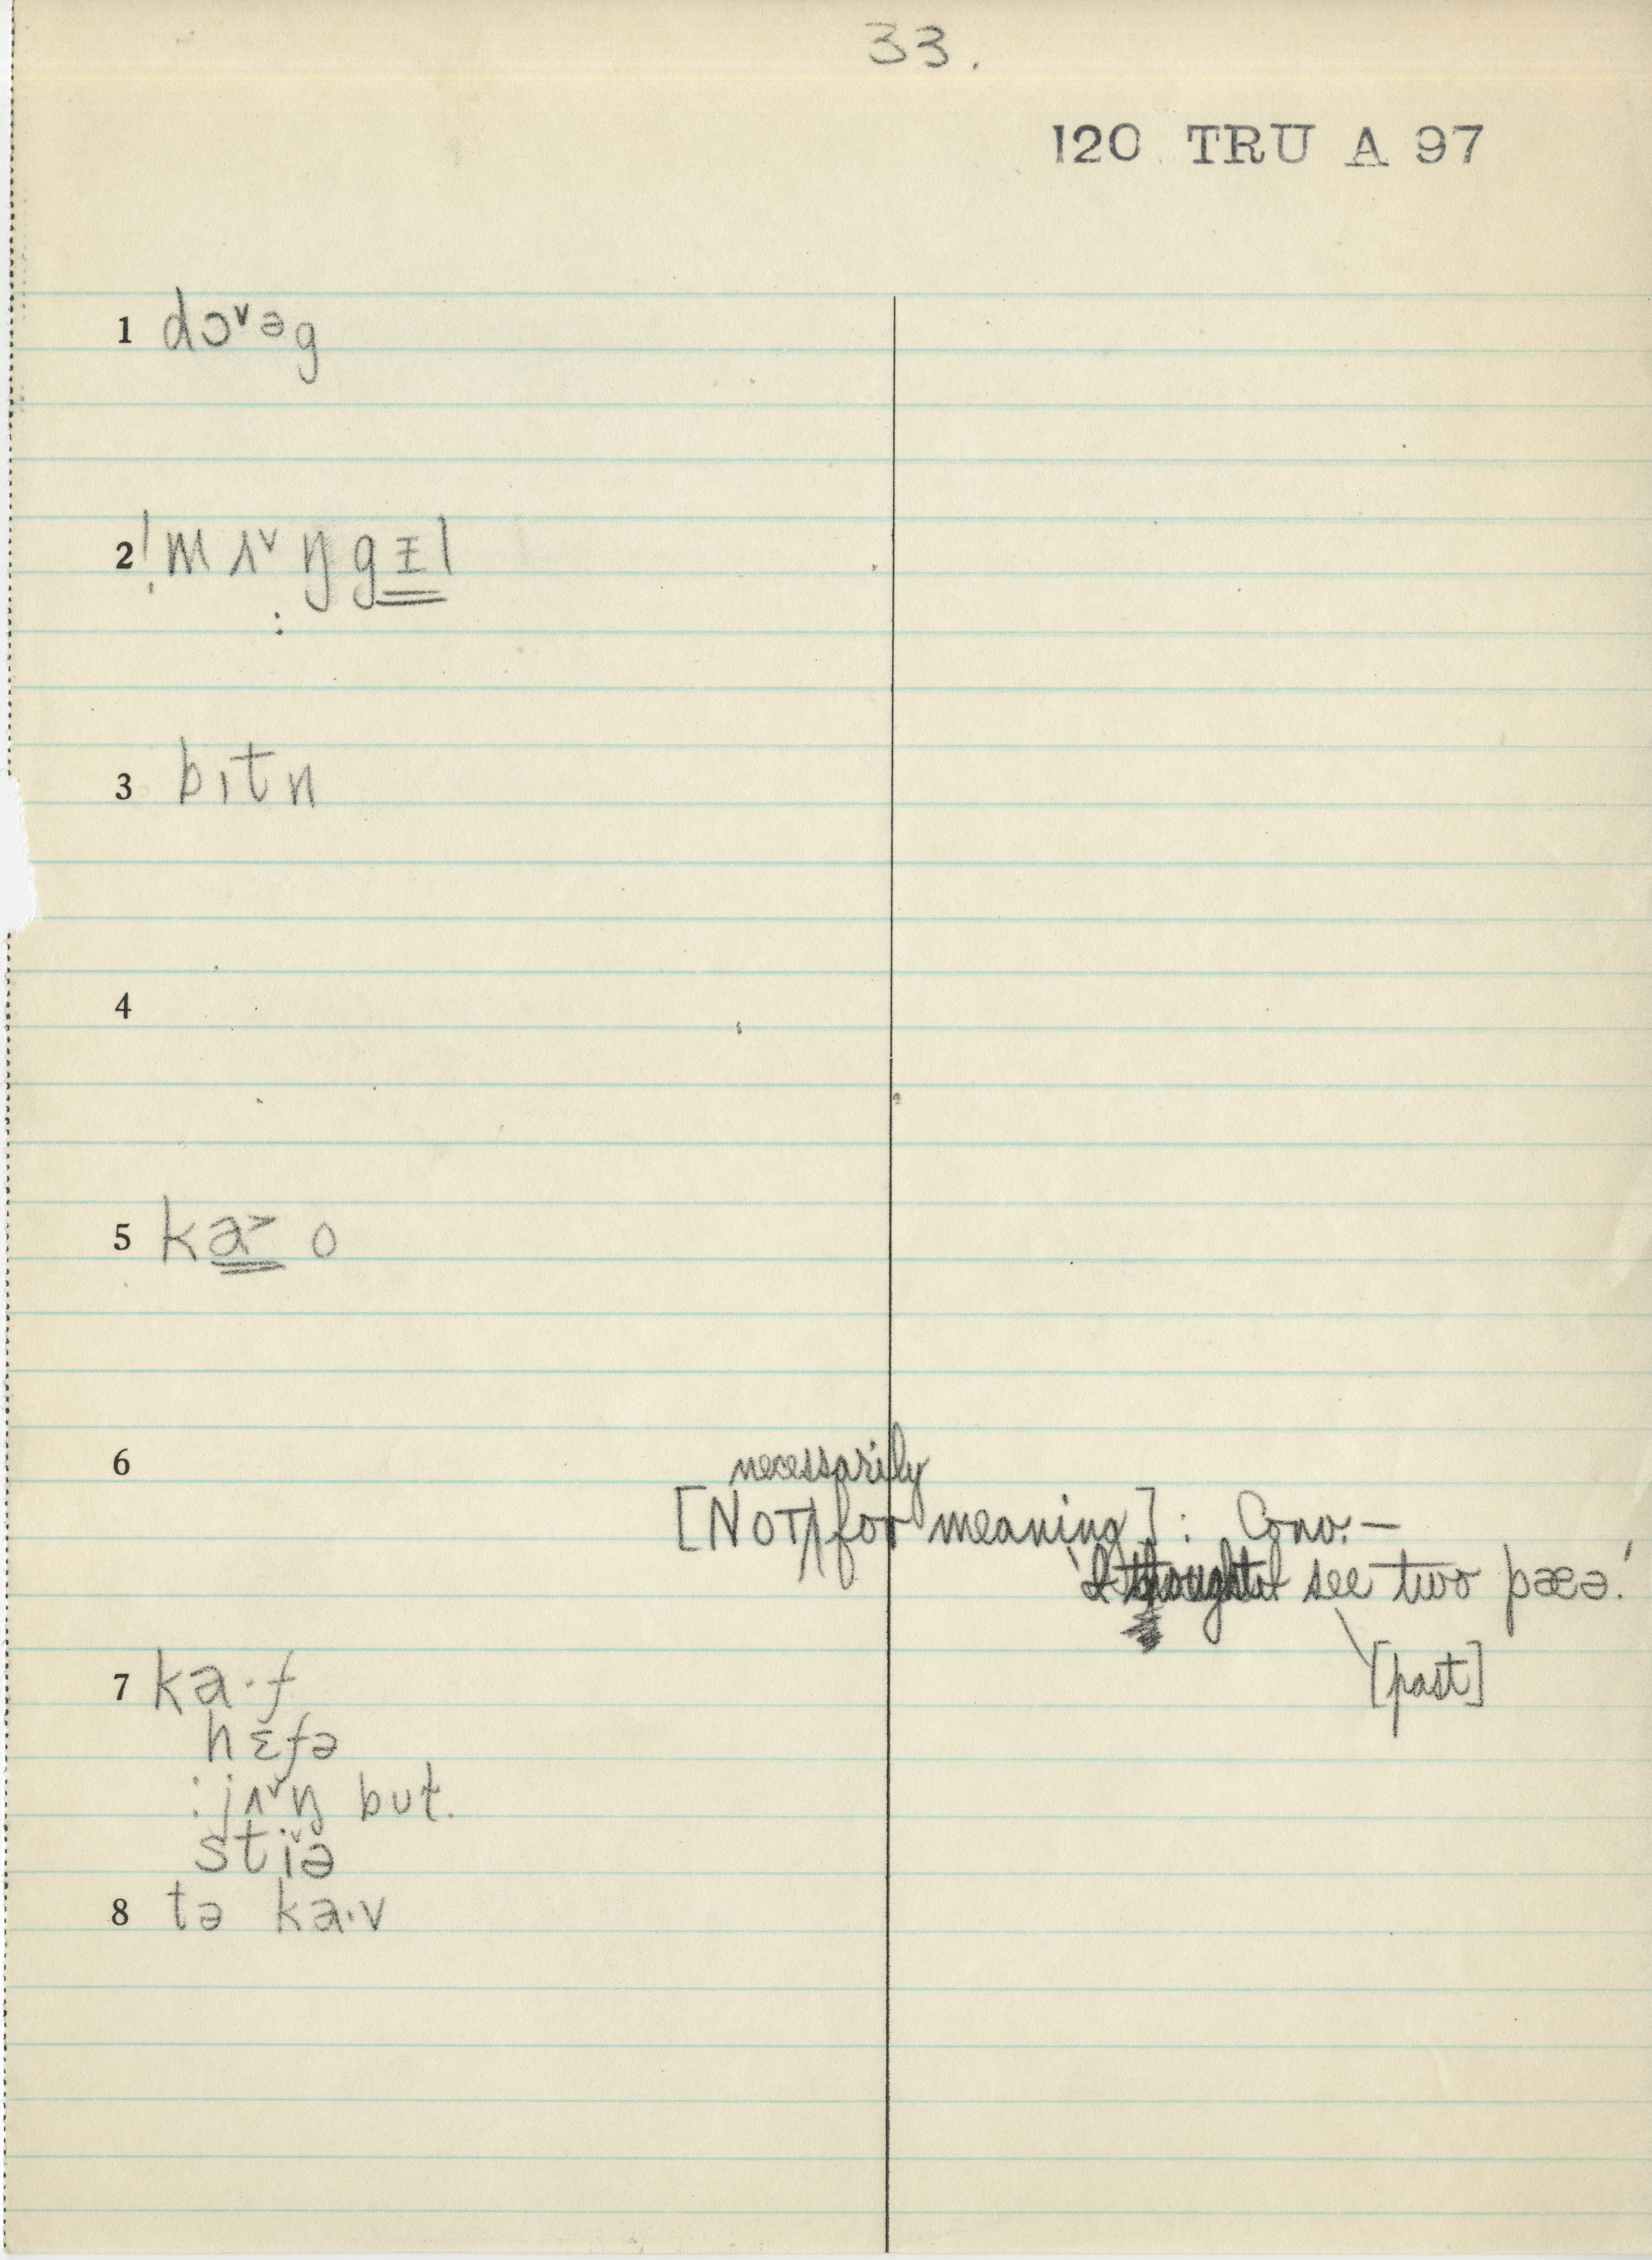 33.
120 TRU A 97
1 dɔ˅əg
2 !mʌ˅ŋgɪl
3 bɪtn
4
5 ka˃ o
6
necessarily
[NOT/for meaning]: Conv. —
'I see two pæə.'
[past]
7 ka·f
hɛfə
:jʌ˅ŋ but.
stiə
8 tə ka·v